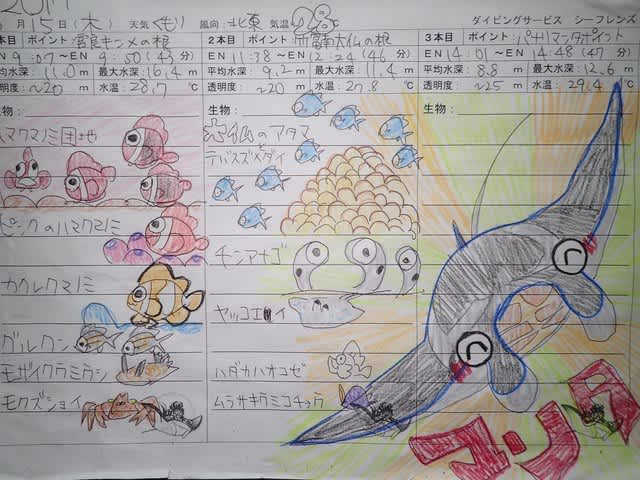 15日(木) 天気 くもり 風向: 北東 気温 28℃ ダイビングサービス シーフレンズ
本目 ポイント: 宮良キンメの根
EN 9:07〜 9:50(43分)
平均水深: 11.0m 最大水深 16.4m
透明度: 〜20m 水温: 28.7℃
生物:
ハマクマノミ団地
ピンクのハマクマノミ
カクレクマノミ
グルクン
モザイクウミウシ
モクズショイ
2本目 ポイント: 大仏の根
EN 11:38〜EN 12:24(46分)
平均水深: 9.2m 最大水深: 11.4m
透明度: 〜20m 水温: 27.8℃
生物:
大仏のアタマ
と
デバスズメダイ
チンアナゴ
ヤッコエイ
ハダカハオコゼ
ムラサキウミコチョウ
3本目 ポイント: パナリマンタポイント
EN 14:01〜EN 14:48(47分)
平均水深: 8.8m 最大水深: 12.6m
透明度: 〜25m 水温: 29.4℃
生物:
マンタ